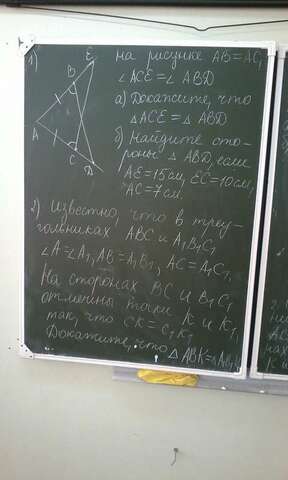 1)
E
B
A
C
D
на рисунке AB=AC,
∠ACE=∠ABD
а) Докажите, что
△ACE=△ABD
б) Найдите сто-
роны △ABD, если
AE=15см, EC=10см,
AC=7см.
2) Известно, что в треу-
гольниках ABC и A₁B₁C₁
∠A=∠A₁, AB=A₁B₁, AC=A₁C₁.
На сторонах BC и B₁C₁
отмечены точки K и K₁
так, что CK=C₁K₁
Докажите, что △ABK=